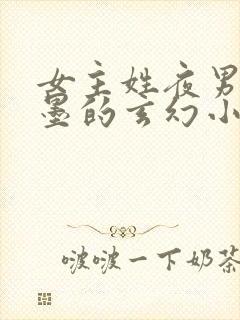 女主姓夜男
墨的玄幻小
啵啵一下奶茶